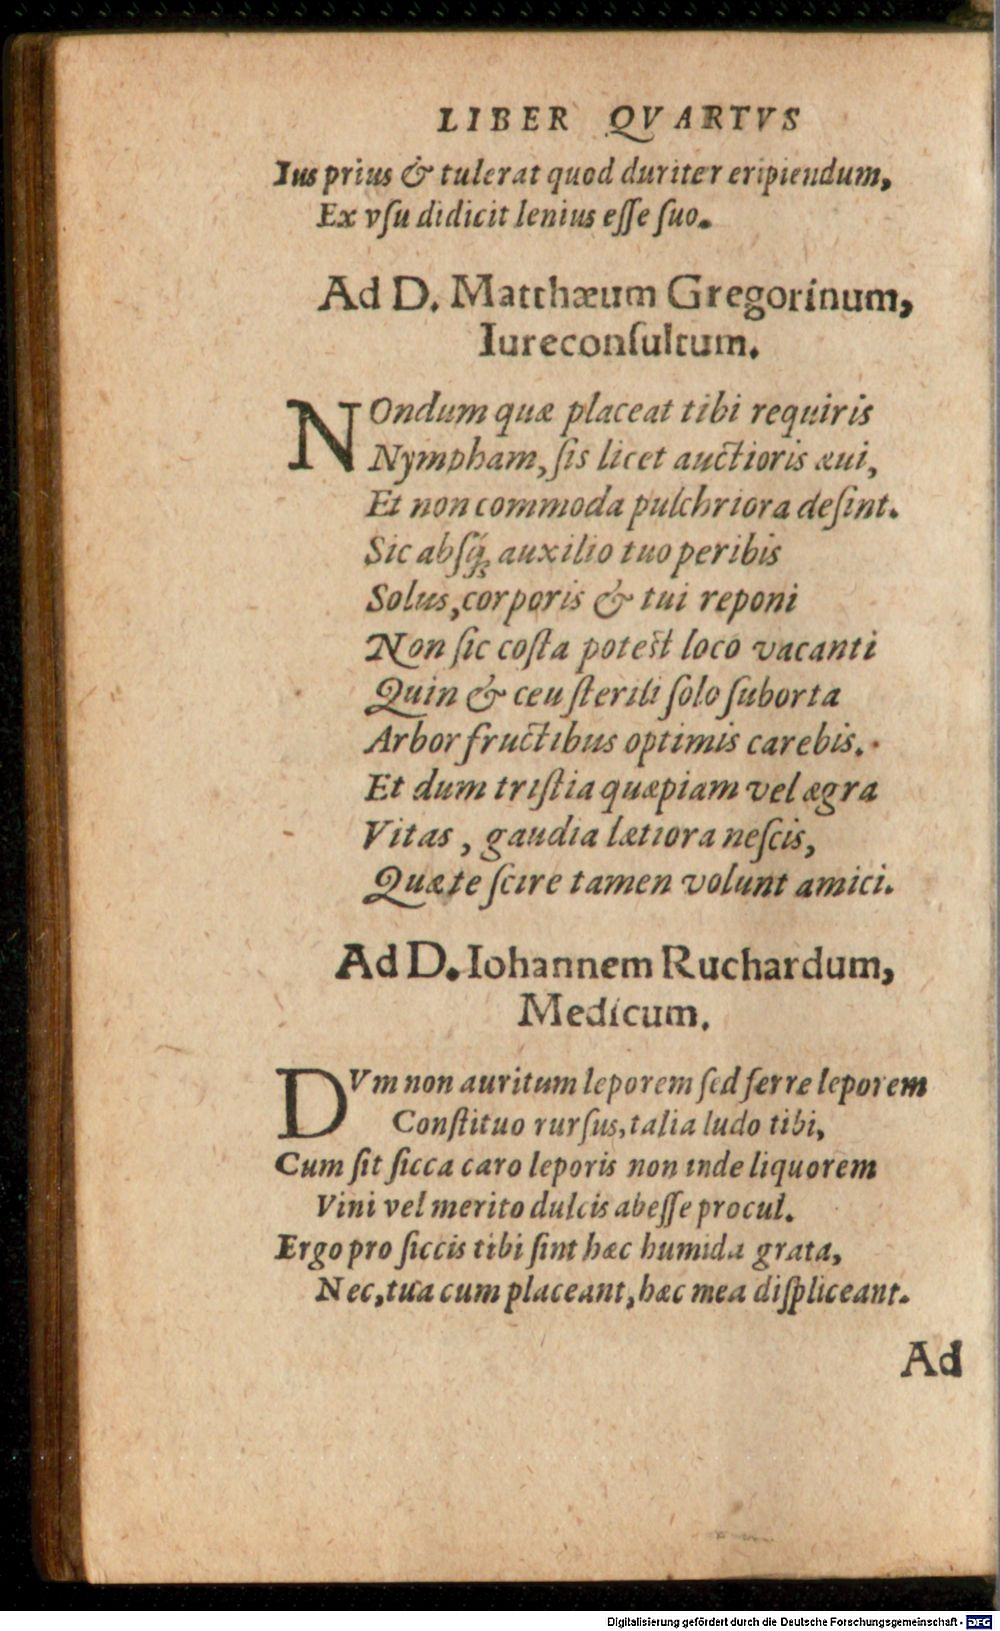 LIBER QVARTVS
Ius prius & tulerat quod duriter eripiendum,
Ex vſu didicit lenius eſſe ſuo.
Ad D. Matthæum Gregorinum,
Iureconſultum.
NOndum quæ placeat tibi requiris
Nympham, ſis licet auctioris æui,
Et non commoda pulchriora deſint.
Sic abſq́ꝫ auxilio tuo peribis
Solus, corporis & tui reponi
Non ſic coſta potest loco vacanti
Quin & ceu ſterili ſolo ſuborta
Arbor fructibus optimis carebis.
Et dum triſtia quæpiam vel ægra
Vitas, gaudia lætiora neſcis,
Quæ te ſcire tamen volunt amici.
Ad D. Iohannem Ruchardum,
Medicum.
DVm non auritum leporem ſed ferre leporem
Conſtituo rurſus, talia ludo tibi,
Cum ſit ſicca caro leporis non inde liquorem
Vini vel merito dulcis abeſſe procul.
Ergo pro ſiccis tibi ſint hæc humida grata,
Nec, tua cum placeant, hæc mea diſpliceant.
Ad
Digitalisierung gefördert durch die Deutsche Forschungsgemeinschaft - DFG